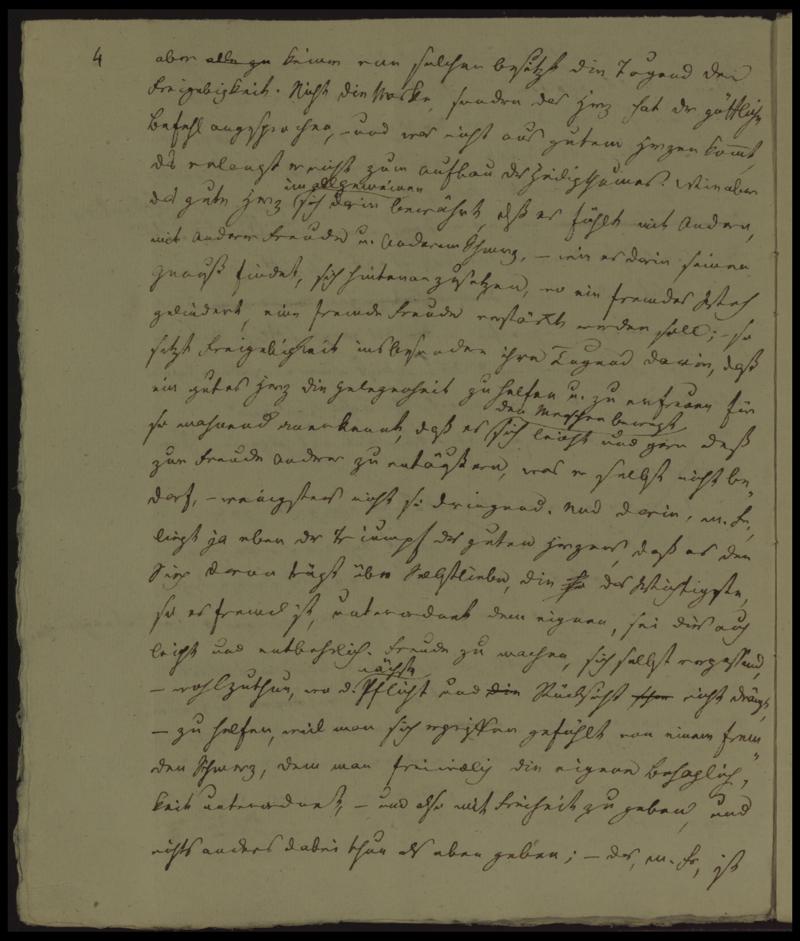 4
aber keiner von solchen besitzt die Tugend der
Freigebigkeit. Nicht die Werke, sondern das Herz hat der göttliche
Befehl angesprochen, – und was nicht aus gutem Herzen kommt,
das verlangt er nicht zum Aufbau des Heiligthumes. Wie aber
im allgemeinen
das gute Herz sich darin bewährt, daß es fühlt mit Andern,
mit Anderer Freude u. Anderem Schmerz, – wie es darin seinen
Genuß findet, sich hintenanzusetzen, wo ein fremdes Weh
gelindert, eine fremde Freude verstärkt werden soll; – so
setzt Freigebigkeit insbesondere ihre Tugend darin, daß
ein gutes Herz die Gelegenheit zu helfen u. zu erfreuen für
den Menschen bewegt
so mahnend anerkennt, daß es sich leicht und gern deß
zur Freude Anderer zu entäußern, was er selbst nicht be„
darf, – wenigstens nicht so dringend. Und darin, m. Fr.,
liegt ja eben der Triumpf des guten Herzens, daß es den
Sieg davon trägt über Selbstliebe, die das Wichtigste,
so es fremd ist, unterordnet dem eignen, sei dies auch
leicht und entbehrlich. Freude zu machen, sich selbst vergessend,
nächste
– wohlzuthun, wo d. Pflicht und die Rücksicht nicht drängt,
– zu helfen, weil man sich ergriffen gefühlt von einem frem„
den Schmerz, dem man freiwillig die eigene Behaglich„
keit unterordnet, – und also mit Freiheit zu geben, und
nichts anders dabei thun als eben geben; – das, m. Fr., ist